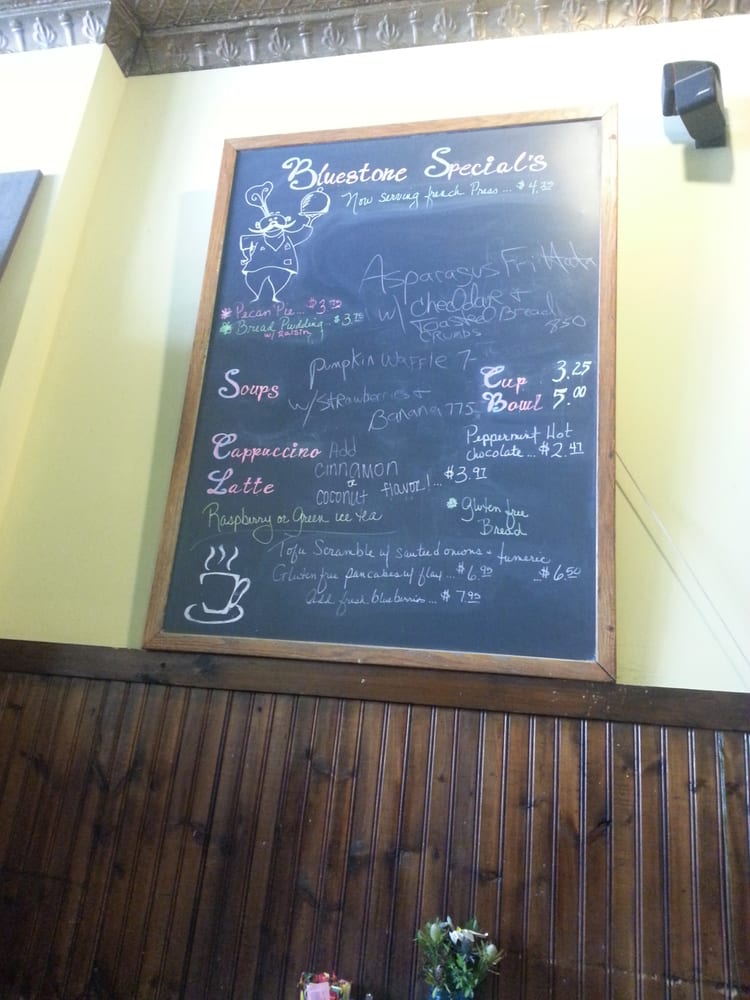 Bluestone Special's
Now serving french Press ... $4.
Asparagus Frittata
w/ cheddar +
Toasted Bread
crumbs 850
Pecan Pie ... $3.
Bread Pudding . $3.
w/ Raisin
Pumpkin Waffle 7-
Soups
Cup 3.25
Bowl 5.00
w/ strawberries +
Banana 775
Peppermint Hot
chocolate ... $2.47
Cappuccino Add
cinnamon
or
Latte
coconut flavor! ... $3.97
Raspberry or Green ice tea
Gluten free
Bread
Tofu Scramble w/ sauteed onions + tumeric
... $6.50
Gluten free pancakes w/ flax ... $6.95
Add fresh blueberries ... $7.95